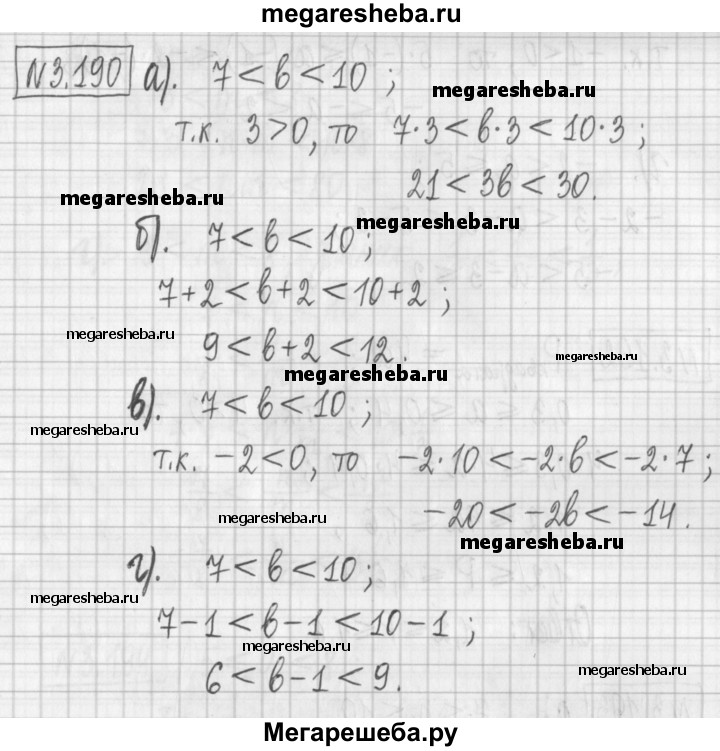 megaresheba.ru
№3.190 а). 7 < b < 10 ;
megaresheba.ru
т.к. 3>0, то 7·3 < b·3 < 10·3 ;
21 < 3b < 30.
megaresheba.ru
megaresheba.ru
б). 7 < b < 10 ;
7+2 < b+2 < 10+2 ;
megaresheba.ru
9 < b+2 < 12.
megaresheba.ru
megaresheba.ru
в). 7 < b < 10 ;
megaresheba.ru
т.к. -2<0, то -2·10 < -2·b < -2·7 ;
-20 < -2b < -14.
megaresheba.ru
megaresheba.ru
г). 7 < b < 10 ;
megaresheba.ru
7-1 < b-1 < 10-1 ;
megaresheba.ru
6 < b-1 < 9.
megaresheba.ru
Мегарешеба.ру